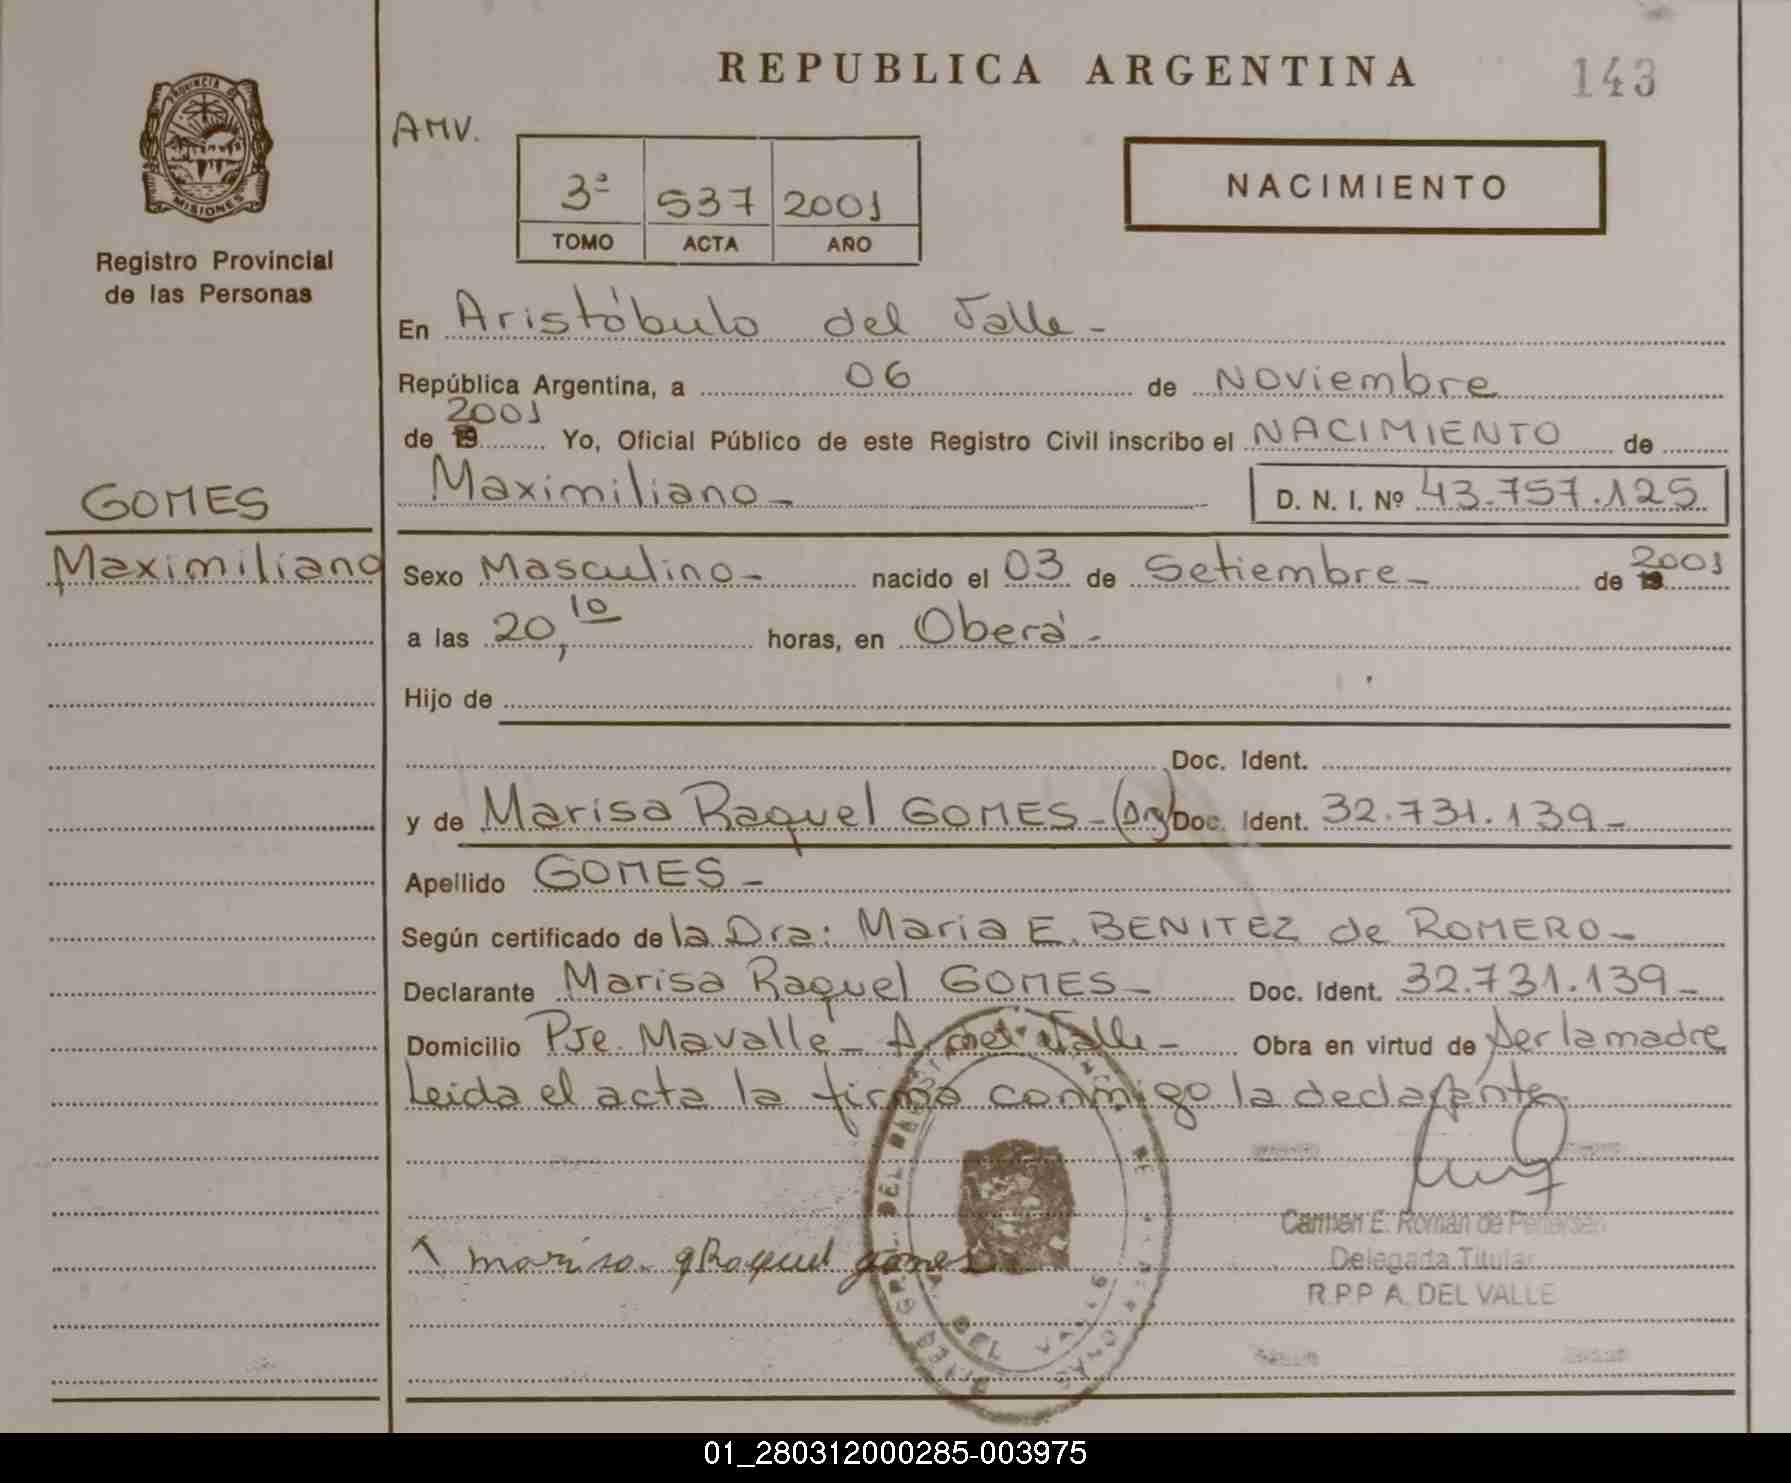 REPUBLICA ARGENTINA
143
PROVINCIA DE
MISIONES
Registro Provincial
de las Personas
AMV.
3ª 537 2001
TOMO ACTA AÑO
NACIMIENTO
En Aristóbulo del Valle -
República Argentina, a 06 de Noviembre
de 19 2001 Yo, Oficial Público de este Registro Civil inscribo el NACIMIENTO de
Maximiliano - D. N. I. Nº 43.757.125
GOMES
Maximiliano
Sexo Masculino - nacido el 03 de Setiembre - de 19 2001
a las 20,10 horas, en Oberá -
Hijo de
Doc. Ident.
y de Marisa Raquel GOMES - (Arg) Doc. Ident. 32.731.139 -
Apellido GOMES -
Según certificado de la Dra: Maria E. BENITEZ de ROMERO -
Declarante Marisa Raquel GOMES - Doc. Ident. 32.731.139 -
Domicilio Pje. Mavalle - A. del Valle - Obra en virtud de ser la madre
Leida el acta la firma conmigo la declarante.
Carmen E. Román de
Delegada Titular
R.P.P A. DEL VALLE
marisa Raquel gomes
DEL VALLE
01_280312000285-003975